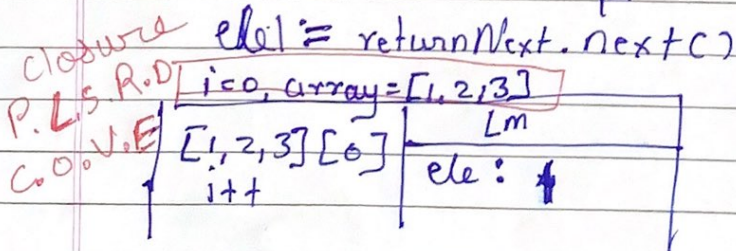 closure
ele1 = returnNext.next()
P.L.S.R.D
i=0, array=[1,2,3]
C.O.V.E
[1,2,3][0]
i++
Lm
ele: 1